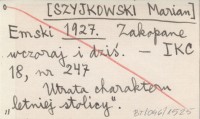 [SZYJKOWSKI Marian]
Emski 1927. Zakopane
wczoraj i dziś. – IKC
18, nr 247
Utrata charakteru
"letniej stolicy".